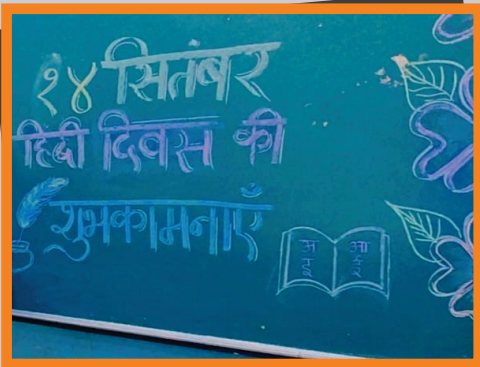 १४ सितंबर
हिंदी दिवस की
शुभकामनाएँ
अ आ